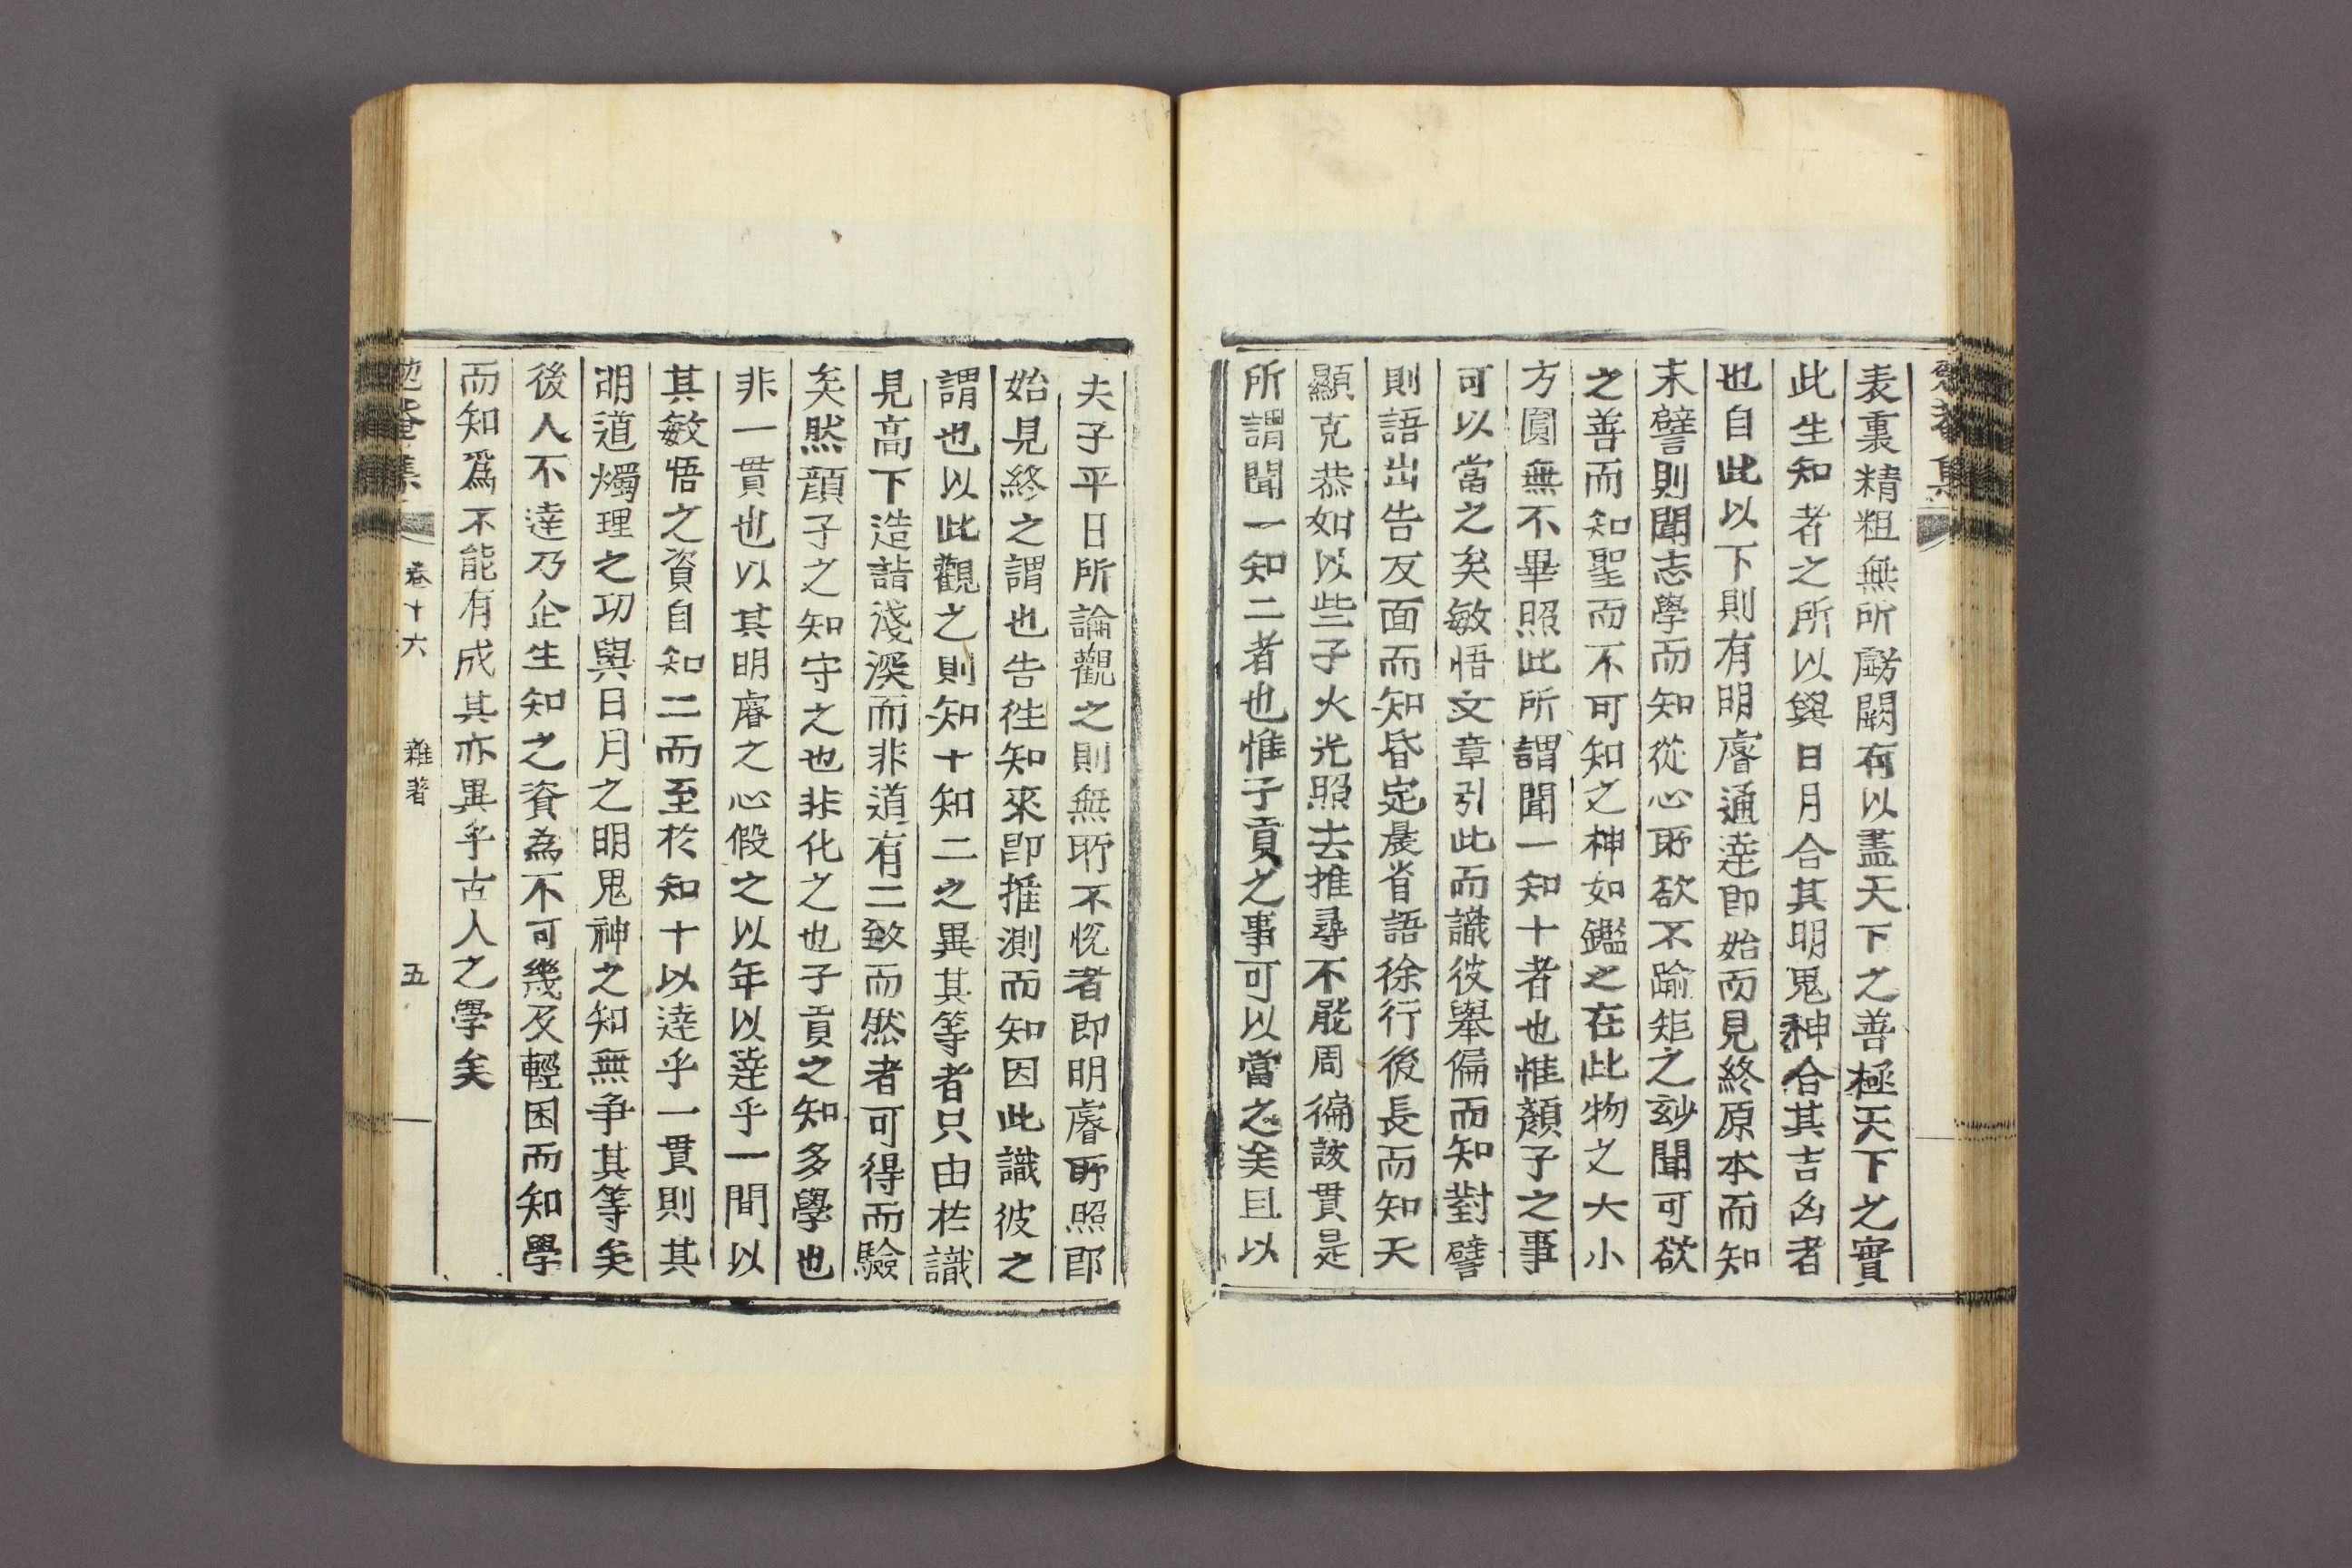 表裏精粗無所虧闕有以盡天下之善極天下之實
此生知者之所以與日月合其明鬼神合其吉凶者
也自此以下則有明睿通達即始而見終原本而知
末譬則聞志學而知從心所欲不踰矩之玅聞可欲
之善而知聖而不可知之神如鑑之在此物之大小
方圓無不畢照此所謂聞一知十者也惟顏子之事
可以當之矣敏悟文章引此而識彼舉偏而知對譬
則語出告反面而知昏定晨省語徐行後長而知天
顯克恭如以些子火光照去推尋不能周徧該貫是
所謂聞一知二者也惟子貢之事可以當之矣且以
夫子平日所論觀之則無所不悅者即明睿所照即
始見終之謂也告徃知來即推測而知因此識彼之
謂也以此觀之則知十知二之異其等者只由於識
見高下造詣淺深而非道有二致而然者可得而驗
矣然顏子之知守之也非化之也子貢之知多學也
非一貫也以其明睿之心假之以年以達乎一間以
其敏悟之資自知二而至於知十以達乎一貫則其
明道燭理之功與日月之明鬼神之知無爭其等矣
後人不達乃企生知之資為不可幾及輕困而知學
而知爲不能有成其亦異乎古人之學矣
卷十六 雜著 五